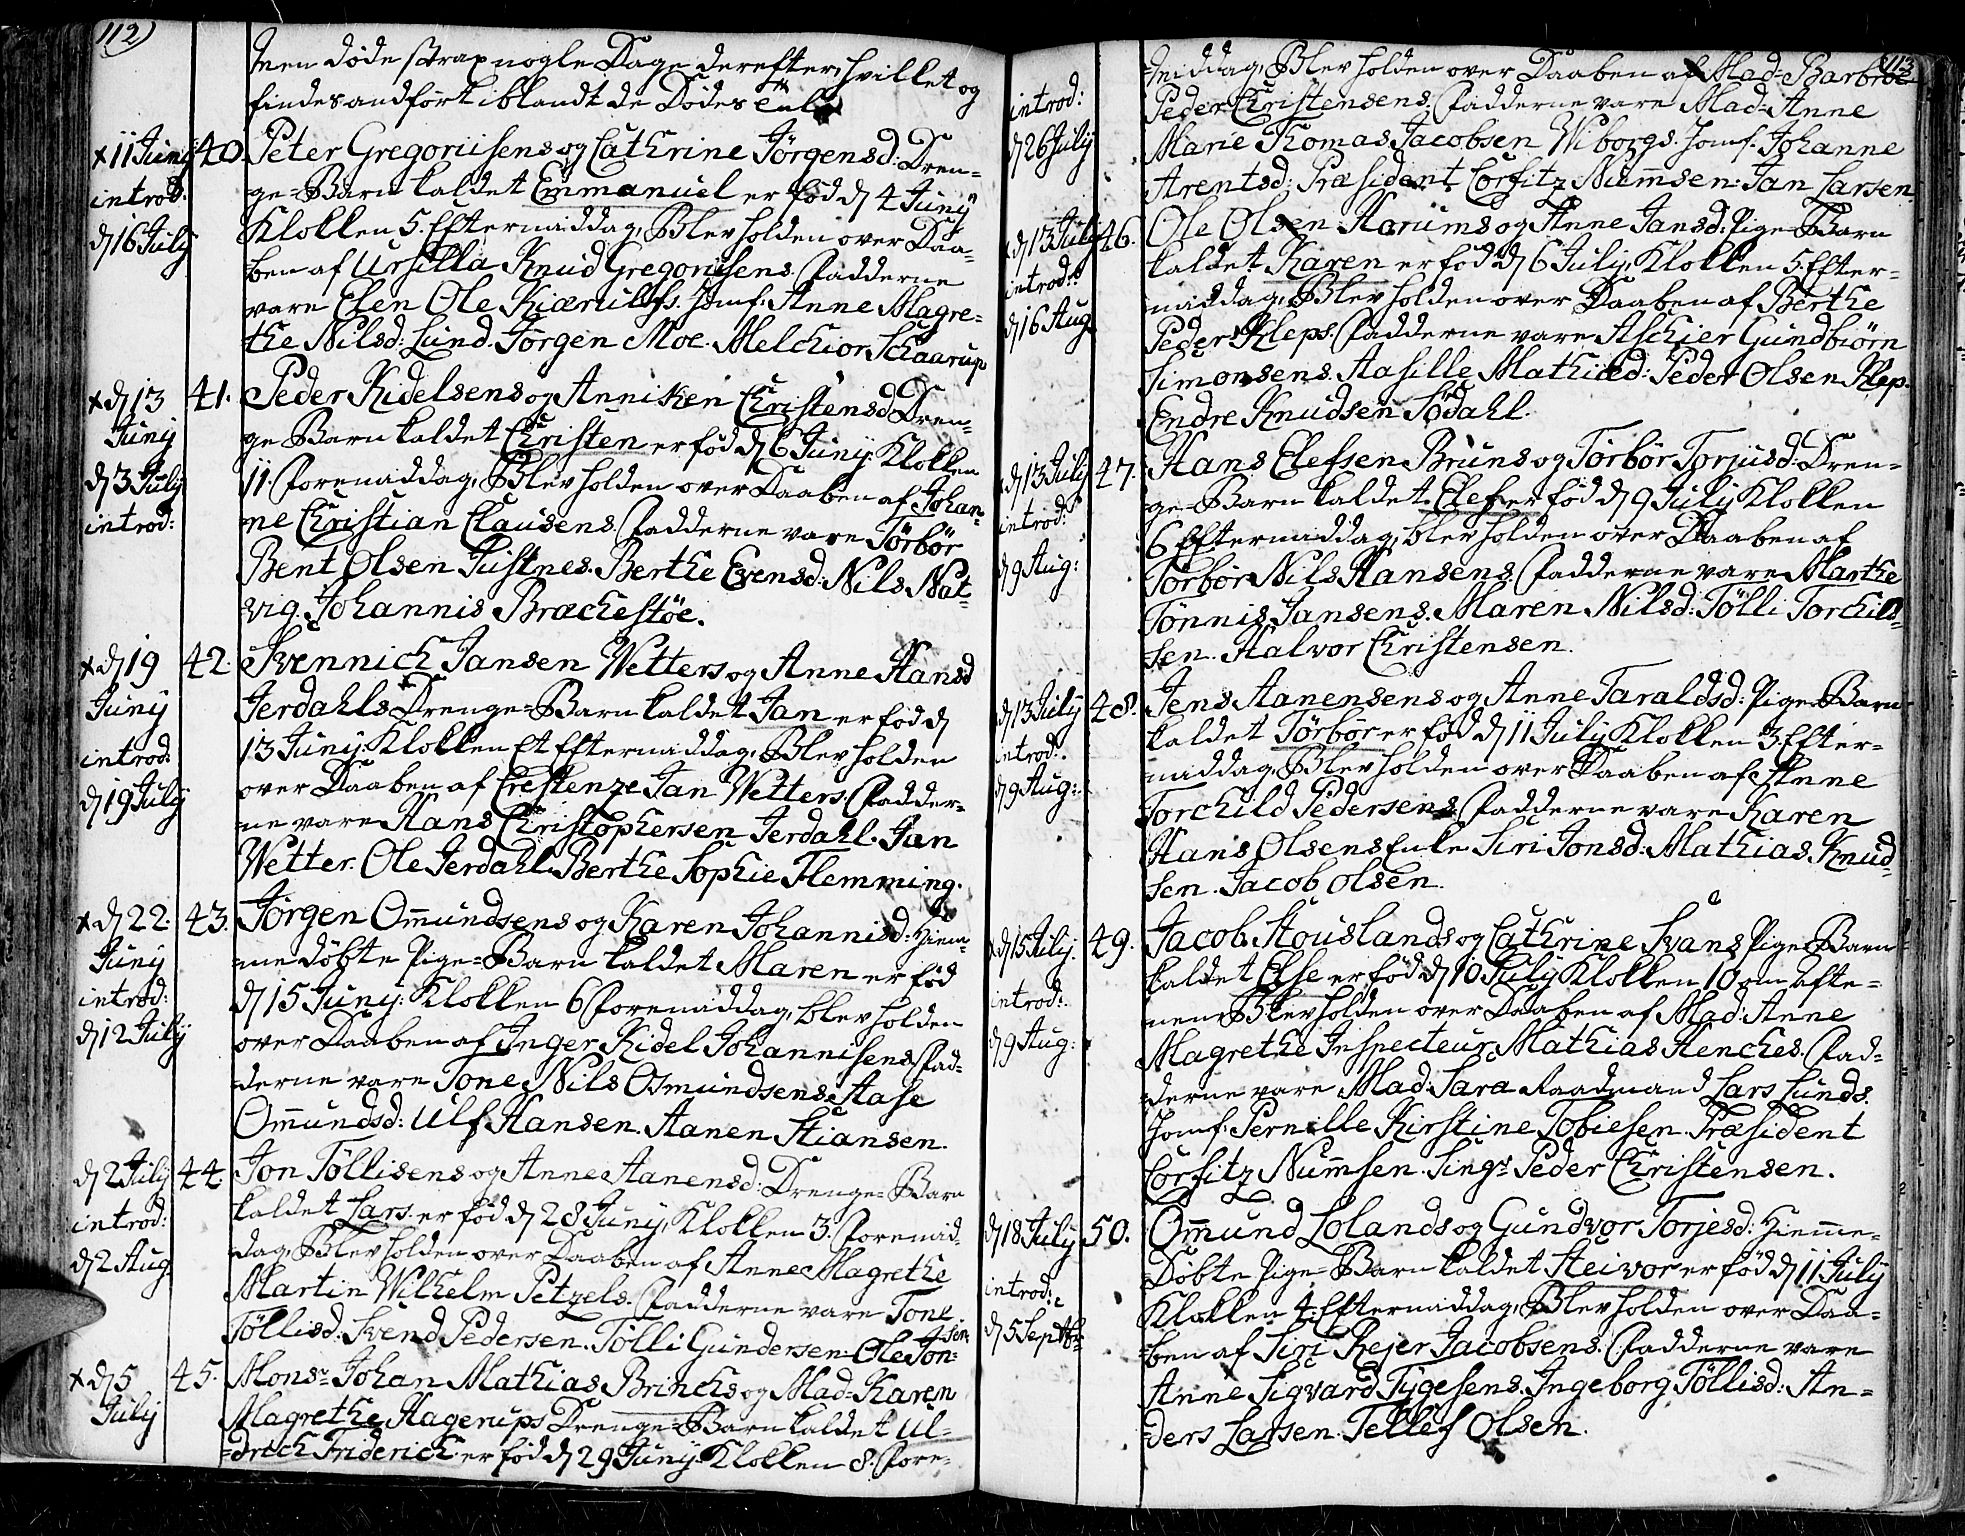 112)
men døde strax nogle Dage derefter, hvillet og
findes andført iblandt de Dødes
x 11 Junij 40. Peter Gregoriisens og Cathrine Jörgensd: Dren-
introd: ge-Barn kaldet Emmanuel er fød d 4 Junij
d 16 Julij Klokken 5. Eftermaddag, Blev holden over Daa-
ben af Ursilla Knud Gregoriisens. Fadderne
vare Elen Ole Kiærulfs. Jomf: Anne Magre-
the Nilsd: Lund. Jörgen Moe. Melchior Schaarup
x d 13 41. Peder Kidelsens og Anniken Christensd Dren-
Junij ge Barn kaldet Christen er fød d 6 Junij Klokken
d 3 Julij 11. Formaddag, Blev holden over Daaben af Johan-
introd: ne Christian Clausens. Fadderne vare Törbör
Bent Olsen Justnes. Berthe Evensd: Nils Nat-
vig. Johannis Brachestöe.
x d 19 42. Svennich Jansen Wetters og Anne Hansd
Junij Jerdahls Drenge-Barn kaldet Jan er fød d
introd: 13 Junij Klokken Et Eftermaddag, Blev holden
d 19 Julij over Daaben af Crestenze Jan Wetters. Fadder-
ne vare Hans Christophersen Jerdahl. Jan
Wetter. Ole Jerdahl. Berthe Sophie Flemming.
x d 22 43. Jörgen Omundsens og Karen Johannisd: Hiem-
Junij me døbte Pige-Barn kaldet Maren er fød
introd: d 15 Junij: Klokken 6 Foremaddag, blev holden
d 12 Julij over Daaben af Inger Kidel Johannisens. Fad-
derne vare Tone Nils Osmundsens. Aase
Omundsd: Ulf Hansen. Aanen Stiansen.
d 2 Julij 44. Jon Töllisens og Anne Aanensd: Drenge-Barn
introd: kaldet Lars er fød d 28 Junij, Klokken 3. Foremad-
d 2 Aug. dag, Blev holden over Daaben af Anne Magrethe
Martin Wilhelm Petzels. Fadderne vare Tone
Töllisd: Svend Pedersen. Tölli Gundersen. Ole Jon-
sen.
x d 5 45. Monsr: Johan Mathias Brinchs og Mad: Karen
Julij Magrethe Hagerups Drenge-Barn kaldet Ul-
drich Friderich er fød d 29 Junij Klokken 8. Fore-
113
middag, Blev holden over Daaben af Mad: Barbroe
introd: Peder Christensens. Fadderne vare Mad: Anne
d 26 Julij Marie Thomas Jacobsen Wiborgs. Jomf: Johanne
Arentsd: Præsident Corfitz Numsen. Jan Larsen.
d 13 Julij 46. Ole Olsen Harums og Anne Jansd: Pige Barn
introd: kaldet Karen er fød d 6 Julij, Klokken 5. Efter-
d 16 Aug. maddag, Blev holden over Daaben af Berthe
Peder Kleps. Fadderne vare Aschier Gundbiörn
Simonsens. Aasille Mathiæd: Peder Olsen Klep.
Endre Knudsen Södahl.
d 13 Julij 47. Hans Elefsen Bruns og Törbör Torjusd: Dren-
introd: ge-Barn kaldet Elef er fød d 9 Julij Klokken
d 9 Aug: 6 Eftermaddag, blev holden over Daaben af
Törbör Nils Hansens. Fadderne vare Marthe
Tönnis Jansens. Maren Nilsd: Tölli Torchild-
sen. Halvor Christensen.
d 13 Julij 48. Jens Aanensens og Anne Taraldsd: Pige-Barn
introd: kaldet Törbör er fød d 11 Julij Klokken 3. Efter-
d 9 Aug: maddag, Blev holden over Daaben af Anne
Torchild Pedersens. Fadderne vare Karen
Hans Olsens Enke. Siri Jonsd: Mathias Knud-
sen. Jacob Olsen.
x d 15 Julij. 49. Jacob Stouslands og Cathrine Svans Pige-Barn
introd: kaldet Else er fød d 10 Julij Klokken 10 om Afte-
d 9 Aug: nen Blev holden over Daaben af Mad: Anne
Magrethe Inspecteur Mathias Henches. Fad-
derne vare Mad: Sara Raadmand Lars Lunds.
Jomf: Pernille Kirstine Tobiesen. Præsident
Corfitz Numsen. Singr: Peder Christensen.
d 18 Julij 50. Omund Lolands og Gundvor Torjesd: Hieme-
introd: Døbte Pige-Barn kaldet Heivor er fød d 11 Julij
d 5 Septbr Klokken 4. Eftermaddag, Blev holden over Daa-
ben af Siri Rejer Jacobsens. Fadderne vare
Anne Sigvard Tygesens. Ingeborg Töllisd: An-
ders Larsen. Tellef Olsen.